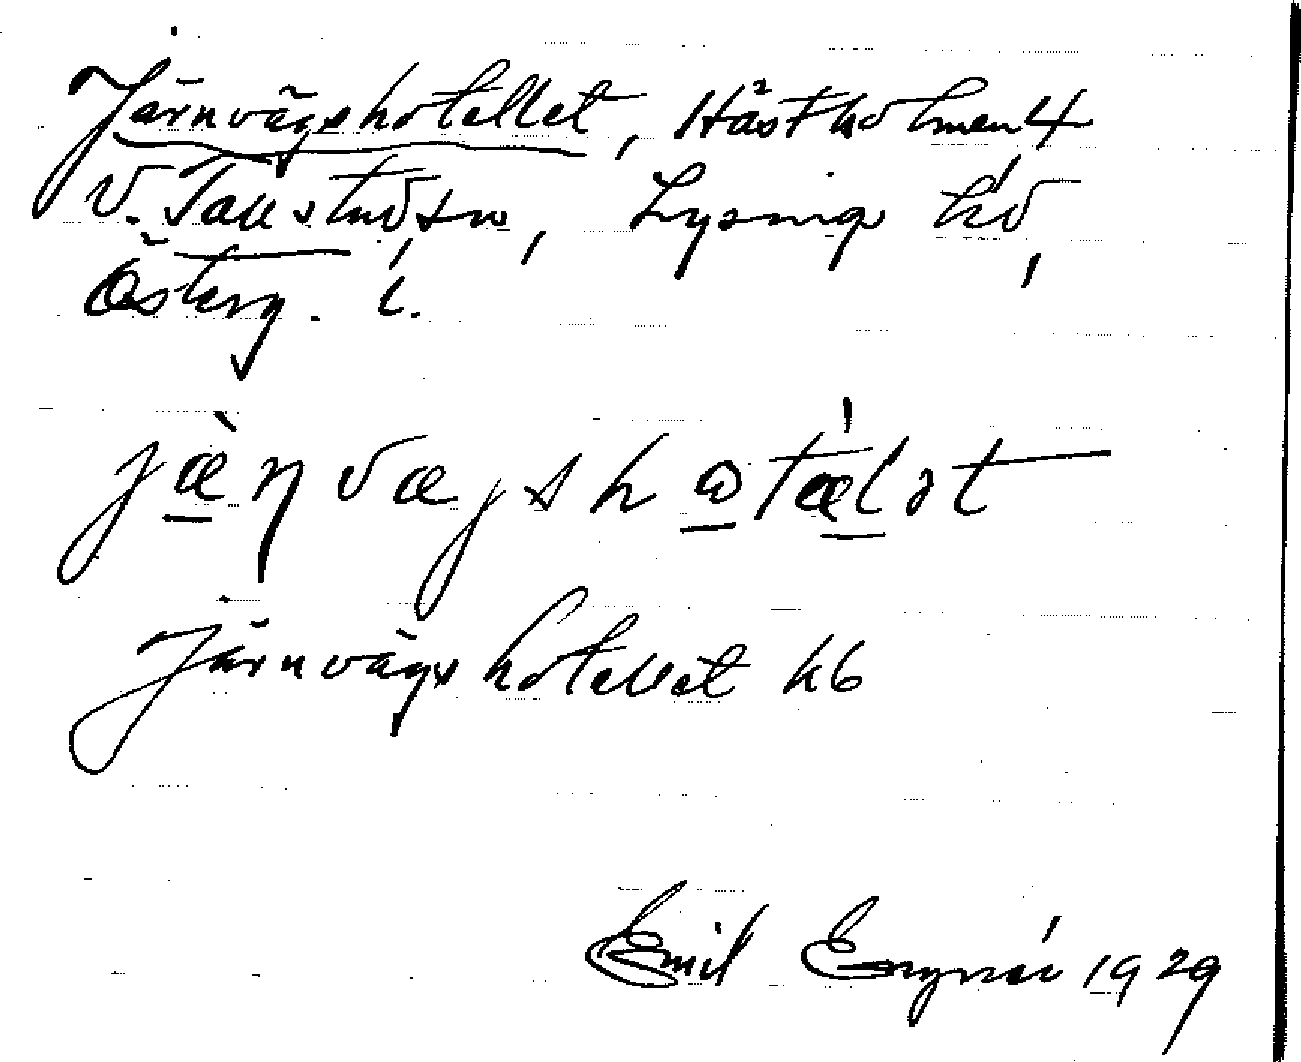 Järnvägshotellet, Hästholmen 4
V. Tollstads sn, Lysings hd,
Österg. l.
jæ̀ɳvægshωtǽlət
Järnvägshotellet kb
Emil Engnér 1929